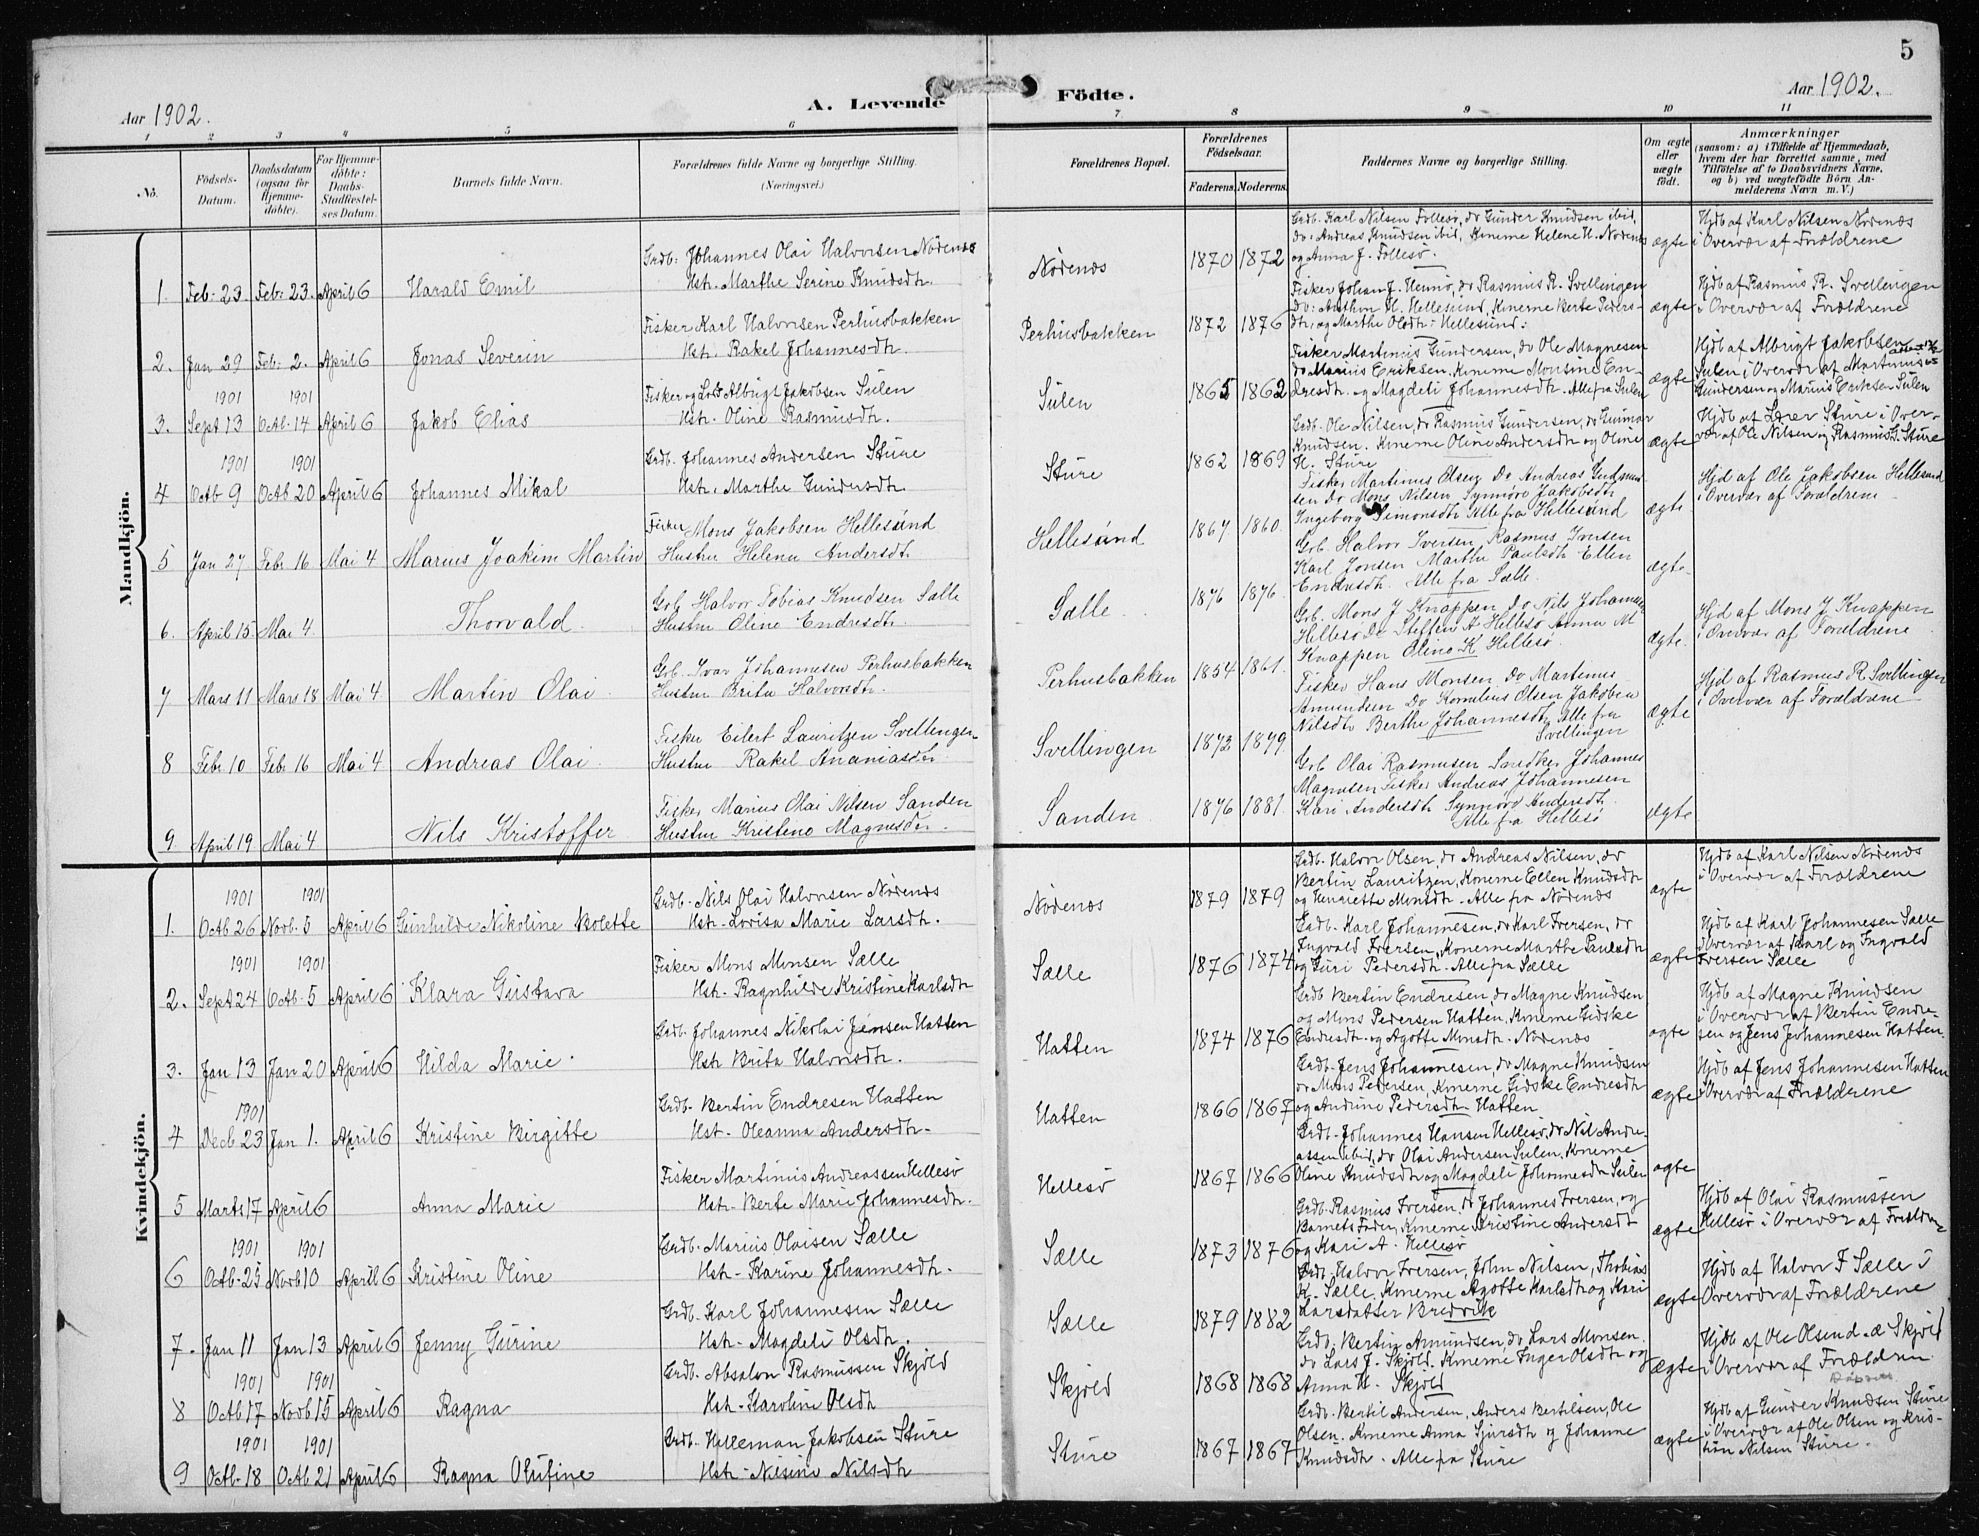 5
Aar 1902.
A. Levende Födte.
Aar 1902.
1 2 3 4 5 6 7 8 9 10 11
No.
Födsels-Datum.
Daabsdatum (ogsaa for Hjemme-döbte).
For Hjemme-döbte: Daabs-Stadfæstel-ses Datum.
Barnets fulde Navn.
Forældrenes fulde Navne og borgerlige Stilling.
(Næringsvei.)
Forældrenes Bopæl.
Forældrenes Födselsaar.
Faderens. Moderens.
Faddernes Navne og borgerlige Stilling.
Om ægte eller uægte födt.
Anmærkninger
(saasom: a) i Tilfælde af Hjemmedaab,
hvem der har forrettet samme, med
Tilföielse af to Daabsvidners Navne,
og b) ved uægtefödte Börn An-
melderens Navn m. V.)
Mandkjön.
Grdb: Johannes Olai Halvorsen Nödenæs
1. Feb. 23 Feb. 23. April 6 Harald Emil Hstr. Marthe Serine Knudsdtr.
Nödenæs 1870 1872
Grdb. Karl Nilsen Follesö, do Gunder Knudsen ibid,
do: Andreas Knudsen ibid, Konerne Helene H. Nödenæs
og Anna J. Follesö.
ægte
Hjdb af Karl Nilsen Nödenæs
i Overvær af Forældrene
Fisker Karl Halvorsen Perhusbakken
2. Jan 29 Feb. 2. April 6 Jonas Severin Hstr. Rakel Johannesdtr.
Perhusbakken 1872 1876
Fisker Johan J. Hennö, do Rasmus R. Svellingen
do: Anthon H. Hellesund, Konerne Berte Peders-
dtr. og Marthe Olsdtr. Hellesund.
ægte
Hjdb af Rasmus R. Svellingen
i Overvær af Forældrene
1901 1901
Fisker og Albrigt Jakobsen Sulen
3. Sept 13 Octb. 14 April 6 Jakob Elias Hstr. Oline Rasmusdtr.
Sulen 1865 1862
Fisker Martinus Gundersen, do Ole Magnesen
do Marius Eriksen, Konerne Monsine En-
dresdtr. og Magdeli Johannesdtr. Alle fra Sulen
ægte
Hjdb af Albrigt Jakobsen
Sulen i Overvær af Martinus
Gundersen og Marius Eriksen Sulen
1901 1901
Grdb. Johannes Andersen Sture
4 Octb 9 Octb 20 April 6 Johannes Mikal Hstr. Marthe Gundersdtr.
Sture 1862 1869
Grdb. Ole Nilsen, do Rasmus Gundersen, do Gunnar
Knudsen. Konerne Oline Andersdtr og Oline
H. Sture
ægte
Hjdb af Lærer Sture i Over-
vær af Ole Nilsen og Rasmus G. Sture
Fisker Mons Jakobsen Hellesund
5 Jan 27 Febr 16 Mai 4 Marius Joakim Martin Hustru Helena Andersdtr.
Hellesund 1867 1860.
Fisker Martinus Olsen Do Andreas Gudmun
sen Do Mons Nilsen Synnöve Jakobsdtr
Ingeborg Simonsdtr Alle fra Hellesund
ægte
Hjd af Ole Jakobsen Hellesund
i Overvær af Forældrene
Grb Halvor Tobias Knudsen Sælle
6. April 15 Mai 4. Thorvald. Hustru Oline Endresdtr.
Sælle 1876 1876.
Grb. Halvor Iversen, Rasmus Iversen
Karl Jonsen Marthe Paulsdtr Ellen
Endresdtr. Alle fra Sælle.
ægte.
Grb. Ivar Johannesen Perhusbakken
7 Mars 11 Mars 18 Mai 4. Martin Olai. Hustru Brita Halvorsdtr.
Perhusbakken 1854 1861.
Grb. Mons J Knappen Do Nils Johannesen
Hellesö Do Steffen A Hellesö Anna M
Knappen Oline K Hellesö
ægte.
Hjd af Mons J Knappen
i Overvær af Forældrene
Fisker Eilert Lauritzen Svellingen
8 Febr 10 Febr 16 Mai 4 Andreas Olai. Hustru Rakel Ananiasdtr
Svellingen 1873 1879.
Fisker Hans Monsen Do Martinus
Amundsen Do Kornelius Olsen Jakobea
Nilsdtr Berthe Johannesdtr Alle fra
Svellingen
ægte
Hjd af Rasmus R Svellingen
i Overvær af Forældrene
Fisker Marius Olai Nilsen Sanden
9 April 19 Mai 4 Nils Kristoffer Hustru Kristine Magnesdtr.
Sanden 1876 1881.
Grb Olai Rasmusen Snedker Johannes
Magnesen Fisker Andreas Johannesen
Kari Andersdtr Synnöve Andersdtr.
Alle fra Hellesö
ægte
Kvindekjön.
1901 1901
Grdb. Nils Olai Halvorsen Nödenæs
1. Octb 26 Novb. 5 April 6 Gunhilde Nikoline Bolette Hstr. Lovisa Marie Larsdtr.
Nödenæs 1879 1879
Grdb. Halvor Olsen, do Andreas Nilsen, do
Bertin Lauritzen, Konerne Ellen Knudsdtr
og Henriette Monsdtr. Alle fra Nödenæs
ægte
Hjdb af Karl Nilsen Nödenæs
i Overvær af Forældrene
1901 1901
Fisker Mons Monsen Sælle
2. Sept 24 Octb. 5 April 6 Klara Gustava Hstr. Ragnhilde Kristine Karlsdtr
Sælle 1876 1874
Grdb. Karl Johannesen, do Karl Iversen, do
Ingvald Iversen, Konerne Marthe Paulsdtr
og Guri Pedersdtr. Alle fra Sælle
ægte
Hjdb af Karl Johannesen Sælle
i Overvær af Karl og Ingvald
Iversen Sælle
Grdb. Johannes Nikolai Jensen Hatten
3. Jan 13 Jan 20 April 6 Hilda Marie Hstr. Brita Halvorsdtr.
Hatten 1874 1876
Grdb Bertin Endresen, do Magne Knudsen
og Mons Pedersen Hatten, Konerne Gidske
Endresdtr. og Agotte Monsdtr. Nödenæs
ægte
Hjdb af Magne Knudsen
i Overvær af Bertin Endre-
sen og Jens Johannesen Hatten.
1901
Grdb. Bertin Endresen Hatten
4 Decb. 23 Jan 1. April 6 Kristine Birgitte Hst. Oleanna Andersdtr.
Hatten 1866 1867
Grdb. Jens Johannesen, do Magne Knudsen
do Mons Pedersen, Konerne Gidske Endresdtr
og Andrine Pedersdtr. Hatten
ægte
Hjdb af Jens Johannesen Hatten
i Overvær af Forældrene
Fisker Martinus Andreassen Hellesö
5 Marts 17 April 6 Anna Marie Hstr. Berte Marie Johannesdtr.
Hellesö 1867 1866
Grdb. Johannes Hansen Hellesö, do Nil Andre-
assen ibid, do Olai Andersen Sulen, Konerne
Oline Knudsdtr og Magdeli Johannesdtr Sulen
ægte
1901 1901
Grdb. Marius Olaisen Sælle
6 Octb. 25 Novb 10 April 6 Kristine Oline Hstr. Karine Johannesdtr.
Sælle 1873 1876
Grdb. Rasmus Iversen, do Johannes Iversen, og
Barnets Fader, Konerne Kristine Andersdtr
og Kari A. Hellesö
ægte
Hjdb af Olai Rasmussen
Hellesö i Overvær af Forældrene
Grdb. Karl Johannesen Sælle
7. Jan 11 Jan 13 April 6 Jenny Gurine Hstr. Magdeli Olsdtr.
Sælle 1879 1882
Grdb. Halvor Iversen, John Nilsen, Thobias
K. Sælle, Konerne Agotte Karlsdtr og Kari
Larsdatter Bredvik
ægte
Hjdb af Halvor I Sælle i
Overvær af Forældrene
1901 1901
Grdb. Absalon Rasmussen Skjold
8 Octb 17 Novb 15 April 6 Ragna Hstr. Karoline Olsdtr
Skjold 1868 1868
Grdb. Bertin Amundsen, do Lars Monsen.
do Lars J. Skjold. Konerne Inger Olsdtr og
Anna H. Skjold
ægte
Hjdb af Ole Olsen d. æ Skjold
i Overvær af Forældren
1901 1901
Grdb. Halleman Jakobsen Sture
9 Octb. 18 Octb. 21 April 6 Ragna Olufine Hstr. Nilsine Nilsdtr
Sture 1867 1867
Grdb. Bertil Andersen, Anders Bertilsen, Ole
Olsen. Konerne Anna Sjursdtr og Johanne
Knudsdtr. Alle fra Sture
ægte
Hjdb af Gunder Knudsen Sture
i Overvær af Ole Olsen og Kris-
tian Nilsen Sture.